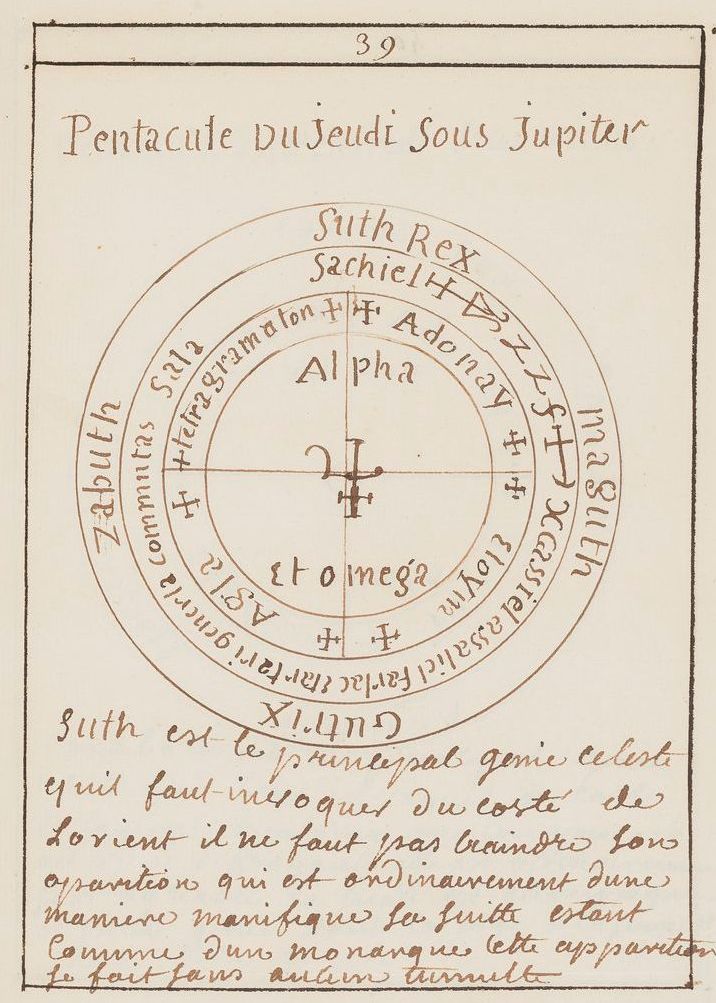 39
Pentacule Du jeudi Sous Jupiter
Suth Rex
Maguth
Gutrix
Zabuth
Sachiel
Cassiel assaliel farlac
tartari generla commutas Sala
Adonay
Eloym
Agla
tetragramaton
Alpha
Et omega
Suth est le principal genie celeste
quil faut invoquer du costé de
Lorient il ne faut pas craindre son
aparition qui est ordinairement dune
maniere manifique sa suitte estant
Comme dun monarque Cette apparition
se fait sans aucun tumulte